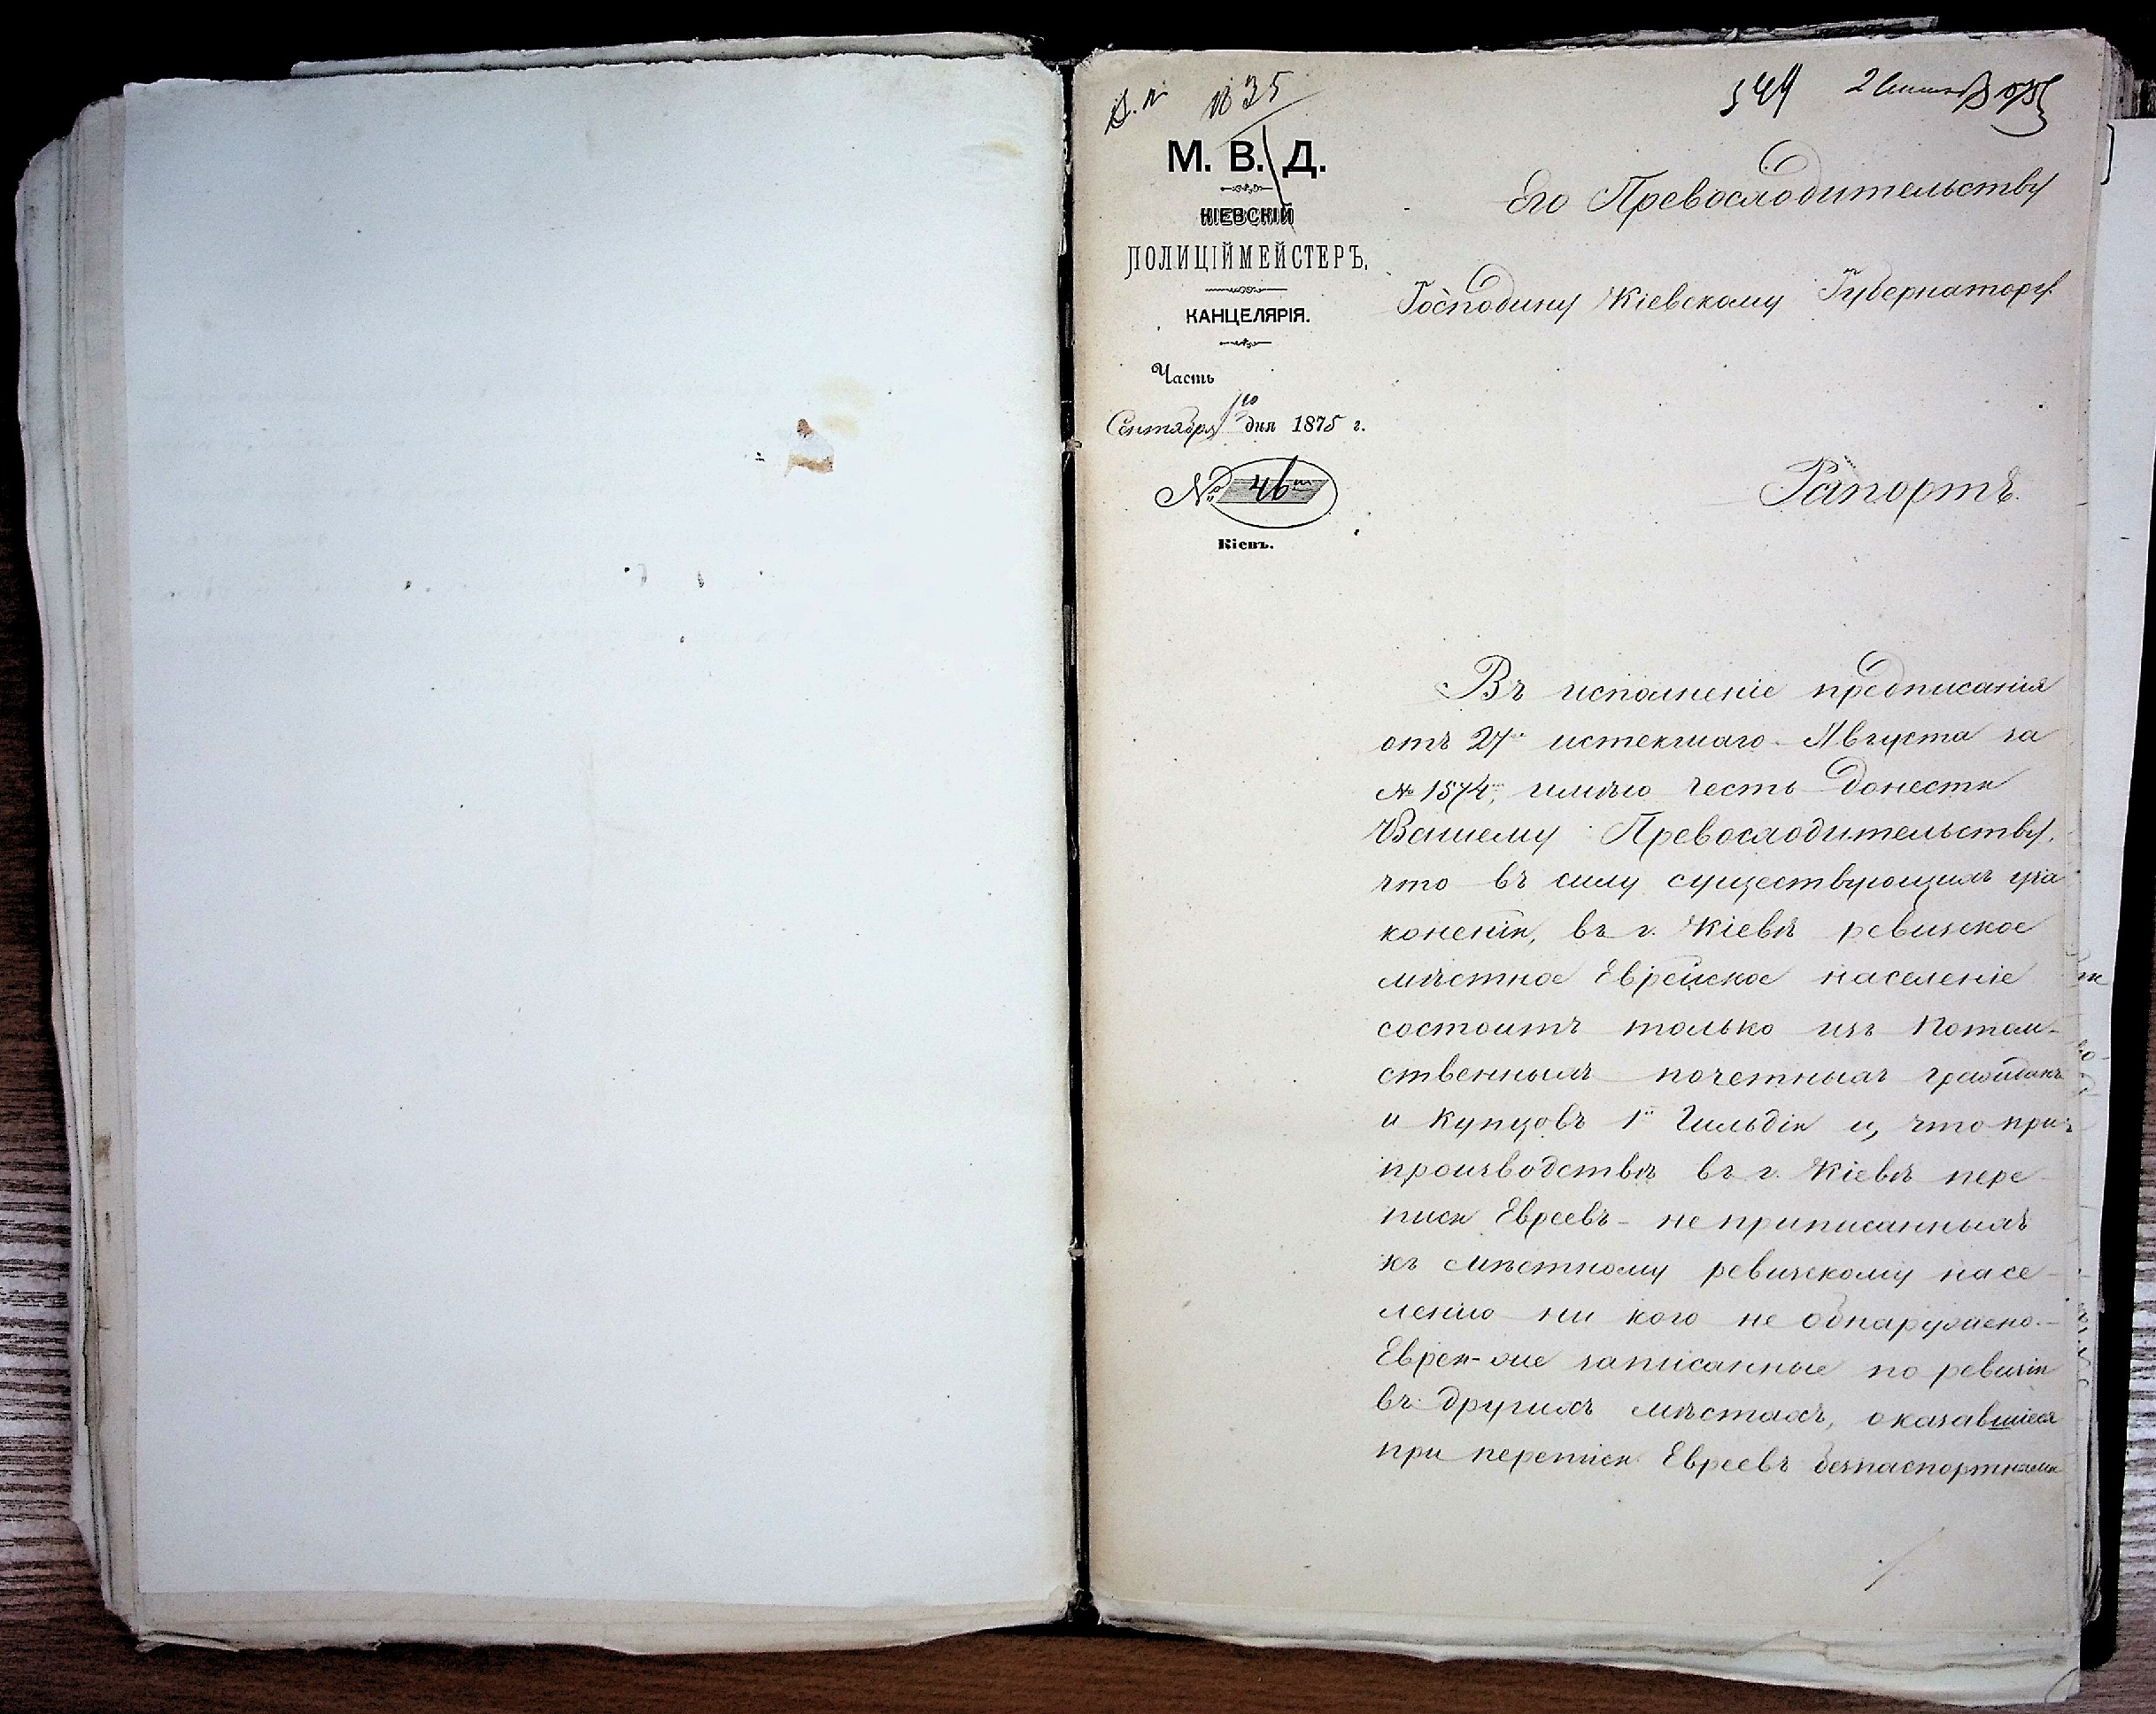 1835
544 2 Сентяб 1875
М. В. Д.
КІЕВСКІЙ
ПОЛИЦІЙМЕЙСТЕРЪ.
КАНЦЕЛЯРІЯ.
Часть
Сентября дня 1875 г.
№ 46
Кіевъ.
Его Превосходительству
Господину Кіевскому Губернатору.
Рапортъ.
Въ исполненіе предписанія
отъ 27 истекшаго Августа за
№ 1574, имѣю честь донести
Вашему Превосходительству,
что въ силу существующихъ уза
коненій, въ г. Кіевѣ ревизское
мѣстное Еврейское населеніе
состоитъ только изъ Потом-
ственныхъ почетныхъ гражданъ
и Купцовъ 1й Гильдіи и, что при
производствѣ въ г. Кіевѣ пере-
писи Евреевъ - не приписанныхъ
къ мѣстному ревизскому насе-
ленію ни кого не обнаружено.-
Евреи-же записанные по ревизіи
въ другихъ мѣстахъ, оказавшіеся
при переписи Евреевъ безпаспортными